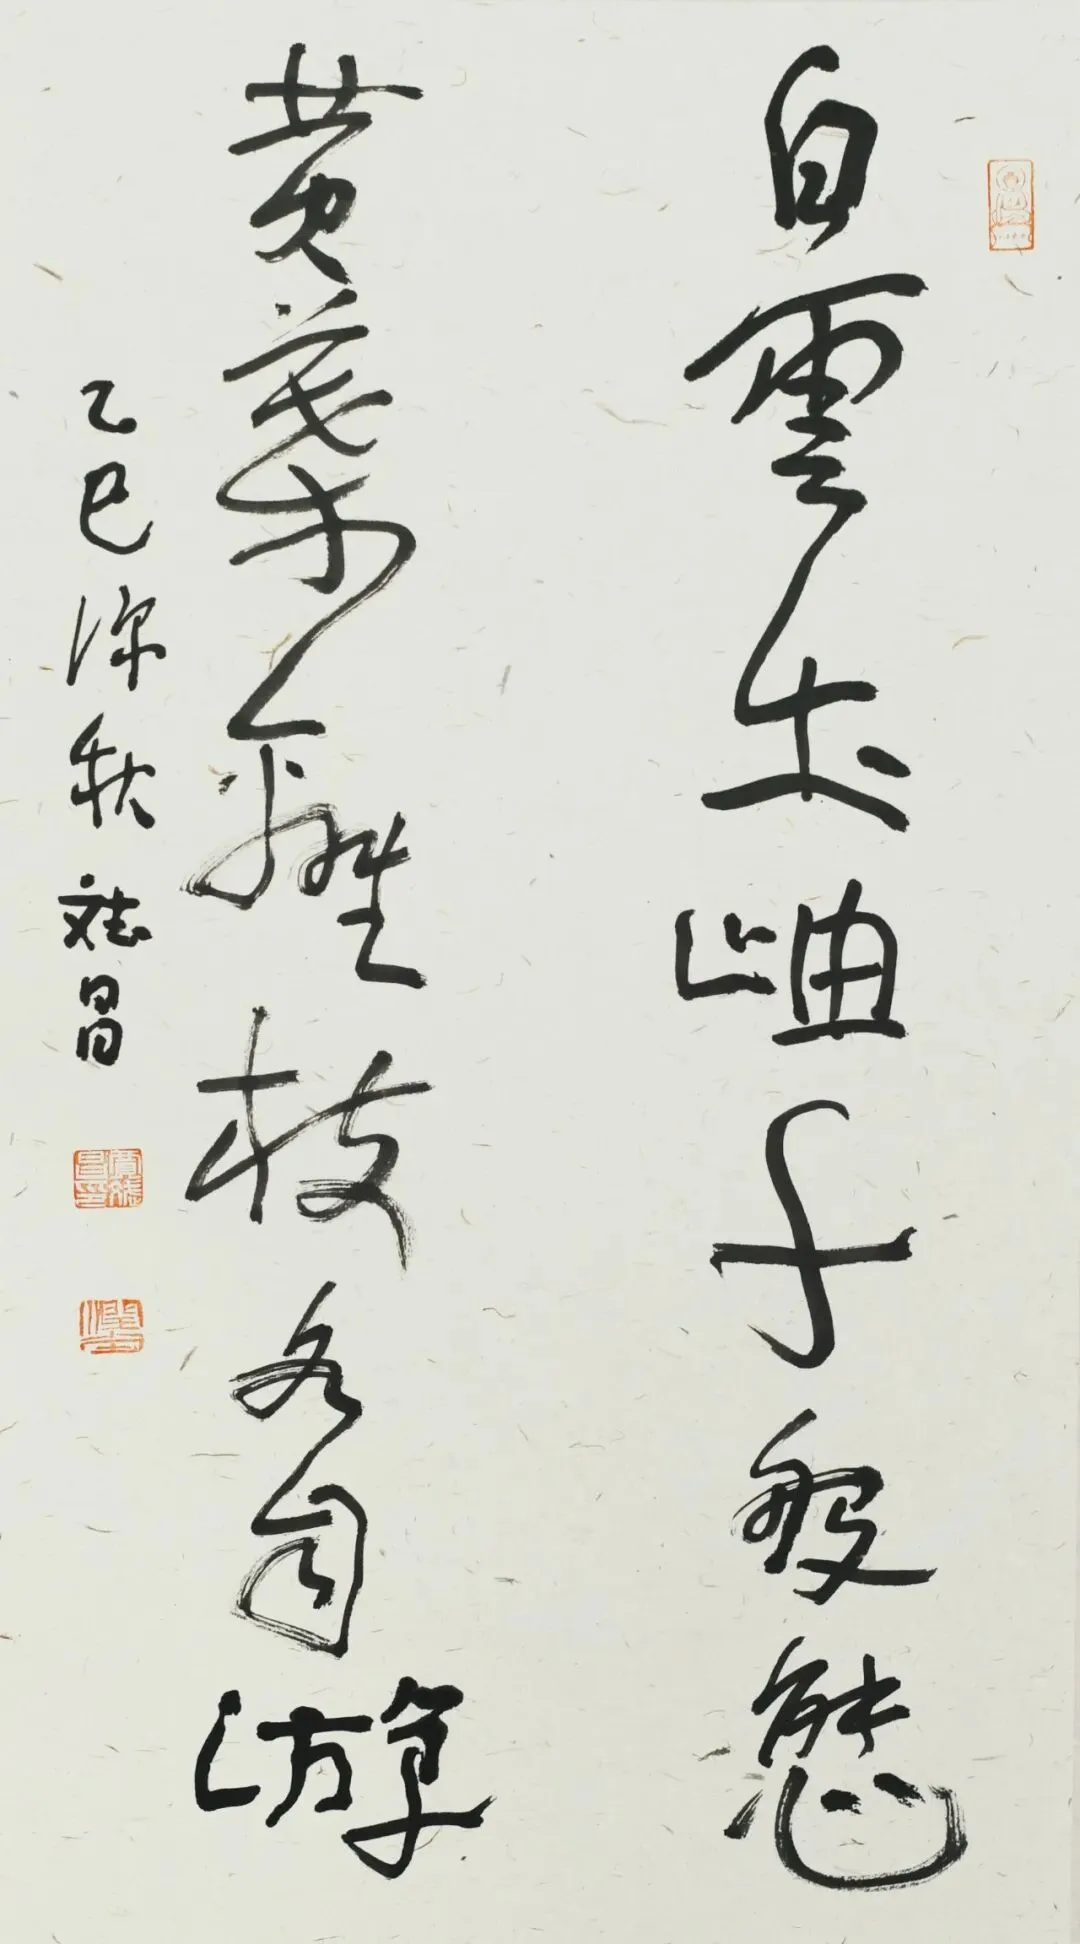 白雲出岫千般態
黄葉離枝各自游
乙巳深秋 斌昌